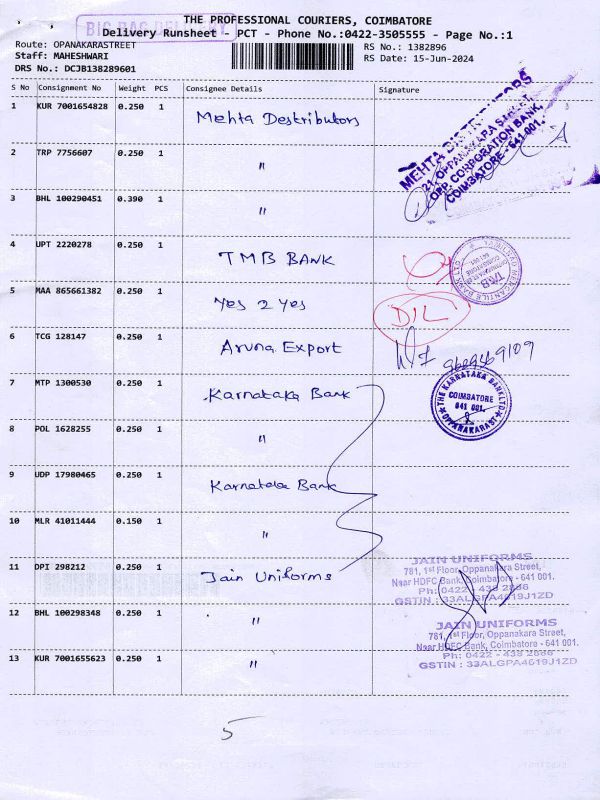 BIG BAG DELIVERY
THE PROFESSIONAL COURIERS, COIMBATORE
Delivery Runsheet - PCT - Phone No.:0422-3505555 - Page No.:1
Route: OPANAKARASTREET
Staff: MAHESHWARI
DRS No.: DCJB138289601
RS No.: 1382896
RS Date: 15-Jun-2024
S No Consignment No Weight PCS Consignee Details Signature
1 KUR 7001654828 0.250 1 Mehta Destributors
MEHTA DISTRIBUTORS
21, OPPANAKARA STREET,
OPP. CORPORATION BANK,
COIMBATORE - 641 001.
2 TRP 7756607 0.250 1 "
3 BHL 100290451 0.390 1 "
4 UPT 2220278 0.250 1 TMB BANK
TAMILNAD MERCANTILE BANK LTD
TAB
5 MAA 865661382 0.250 1 Yes 2 Yes
D/L
6 TCG 128147 0.250 1 Aruna Export
9629469109
7 MTP 1300530 0.250 1 Karnataka Bank
THE KARNATAKA BANK LTD
COIMBATORE
641 001.
OPPANAKARAST
8 POL 1628255 0.250 1 "
9 UDP 17980465 0.250 1 Karnataka Bank
10 MLR 41011444 0.150 1 "
11 DPI 298212 0.250 1 Jain Uniforms
JAIN UNIFORMS
781, 1st Floor, Oppanakara Street,
Near HDFC Bank, Coimbatore - 641 001.
Ph: 0422 - 438 2886
GSTIN : 33ALGPA4619J1ZD
12 BHL 100298348 0.250 1 "
JAIN UNIFORMS
781, 1st Floor, Oppanakara Street,
Near HDFC Bank, Coimbatore - 641 001.
Ph: 0422 - 438 2886
GSTIN : 33ALGPA4619J1ZD
13 KUR 7001655623 0.250 1 "
5